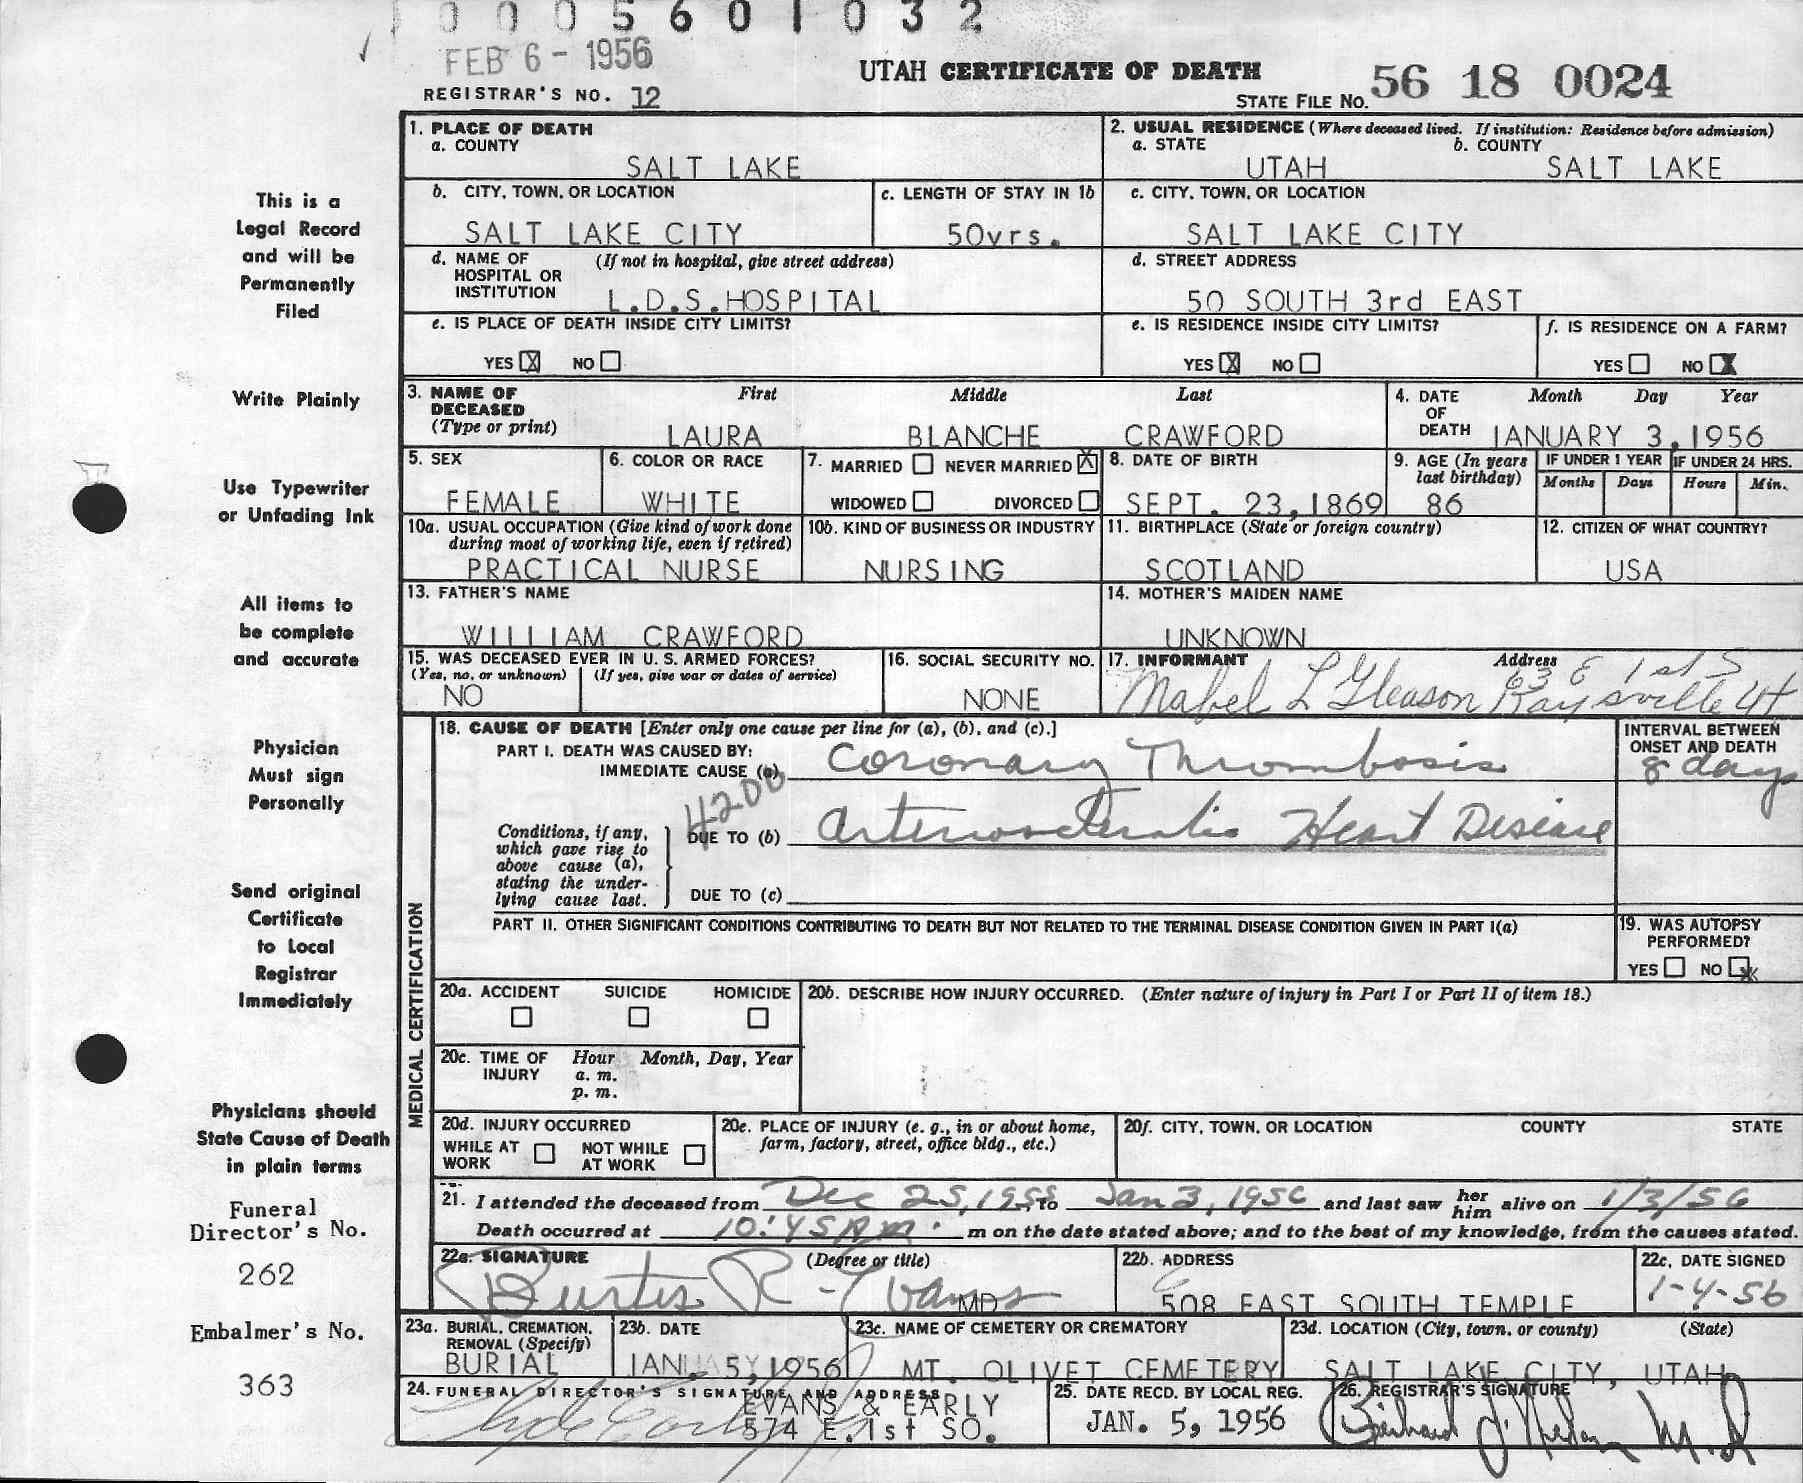 0 0 0 5 6 0 1 0 3 2
FEB 6 - 1956
UTAH CERTIFICATE OF DEATH
REGISTRAR'S NO. 12
STATE FILE NO. 56 18 0024
1. PLACE OF DEATH
a. COUNTY
SALT LAKE
2. USUAL RESIDENCE (Where deceased lived. If institution: Residence before admission)
a. STATE b. COUNTY
UTAH SALT LAKE
b. CITY, TOWN, OR LOCATION
SALT LAKE CITY
c. LENGTH OF STAY IN 1b
50yrs.
c. CITY, TOWN, OR LOCATION
SALT LAKE CITY
d. NAME OF HOSPITAL OR INSTITUTION (If not in hospital, give street address)
L.D.S.HOSPITAL
d. STREET ADDRESS
50 SOUTH 3rd EAST
e. IS PLACE OF DEATH INSIDE CITY LIMITS?
YES X NO
e. IS RESIDENCE INSIDE CITY LIMITS?
YES X NO
f. IS RESIDENCE ON A FARM?
YES NO X
3. NAME OF DECEASED (Type or print)
First Middle Last
LAURA BLANCHE CRAWFORD
4. DATE OF DEATH
Month Day Year
JANUARY 3,1956
5. SEX
FEMALE
6. COLOR OR RACE
WHITE
7. MARRIED NEVER MARRIED X
WIDOWED DIVORCED
8. DATE OF BIRTH
SEPT. 23,1869
9. AGE (In years last birthday)
86
IF UNDER 1 YEAR
Months Days
IF UNDER 24 HRS.
Hours Min.
10a. USUAL OCCUPATION (Give kind of work done during most of working life, even if retired)
PRACTICAL NURSE
10b. KIND OF BUSINESS OR INDUSTRY
NURSING
11. BIRTHPLACE (State or foreign country)
SCOTLAND
12. CITIZEN OF WHAT COUNTRY?
USA
13. FATHER'S NAME
WILLIAM CRAWFORD
14. MOTHER'S MAIDEN NAME
UNKNOWN
15. WAS DECEASED EVER IN U. S. ARMED FORCES?
(Yes, no, or unknown) (If yes, give war or dates of service)
NO
16. SOCIAL SECURITY NO.
NONE
17. INFORMANT Address
63 E 1st S
Mabel L Gleason Kaysville Ut
MEDICAL CERTIFICATION
18. CAUSE OF DEATH [Enter only one cause per line for (a), (b), and (c).]
PART I. DEATH WAS CAUSED BY:
IMMEDIATE CAUSE (a) Coronary Thrombosis
INTERVAL BETWEEN ONSET AND DEATH
8 days
4200
Conditions, if any, which gave rise to above cause (a), stating the underlying cause last.
DUE TO (b) Arteriosclerotic Heart Disease
DUE TO (c)
PART II. OTHER SIGNIFICANT CONDITIONS CONTRIBUTING TO DEATH BUT NOT RELATED TO THE TERMINAL DISEASE CONDITION GIVEN IN PART I(a)
19. WAS AUTOPSY PERFORMED?
YES NO X
20a. ACCIDENT SUICIDE HOMICIDE
20b. DESCRIBE HOW INJURY OCCURRED. (Enter nature of injury in Part I or Part II of item 18.)
20c. TIME OF INJURY
Hour Month, Day, Year
a. m.
p. m.
20d. INJURY OCCURRED
WHILE AT WORK NOT WHILE AT WORK
20e. PLACE OF INJURY (e. g., in or about home, farm, factory, street, office bldg., etc.)
20f. CITY, TOWN, OR LOCATION COUNTY STATE
21. I attended the deceased from Dec 25, 1955 to Jan 3, 1956 and last saw her him alive on 1/3/56
Death occurred at 10:45 AM. m on the date stated above; and to the best of my knowledge, from the causes stated.
22a. SIGNATURE (Degree or title)
Burtis R. Evans MD
22b. ADDRESS
508 EAST SOUTH TEMPLE
22c. DATE SIGNED
1-4-56
23a. BURIAL, CREMATION, REMOVAL (Specify)
BURIAL
23b. DATE
JANUARY 5,1956
23c. NAME OF CEMETERY OR CREMATORY
MT. OLIVET CEMETERY
23d. LOCATION (City, town, or county) (State)
SALT LAKE CITY, UTAH
24. FUNERAL DIRECTOR'S SIGNATURE AND ADDRESS
EVANS & EARLY
574 E.1st SO.
25. DATE RECD. BY LOCAL REG.
JAN. 5, 1956
26. REGISTRAR'S SIGNATURE
M.D
This is a
Legal Record
and will be
Permanently
Filed
Write Plainly
Use Typewriter
or Unfading Ink
All items to
be complete
and accurate
Physician
Must sign
Personally
Send original
Certificate
to Local
Registrar
Immediately
Physicians should
State Cause of Death
in plain terms
Funeral
Director's No.
262
Embalmer's No.
363